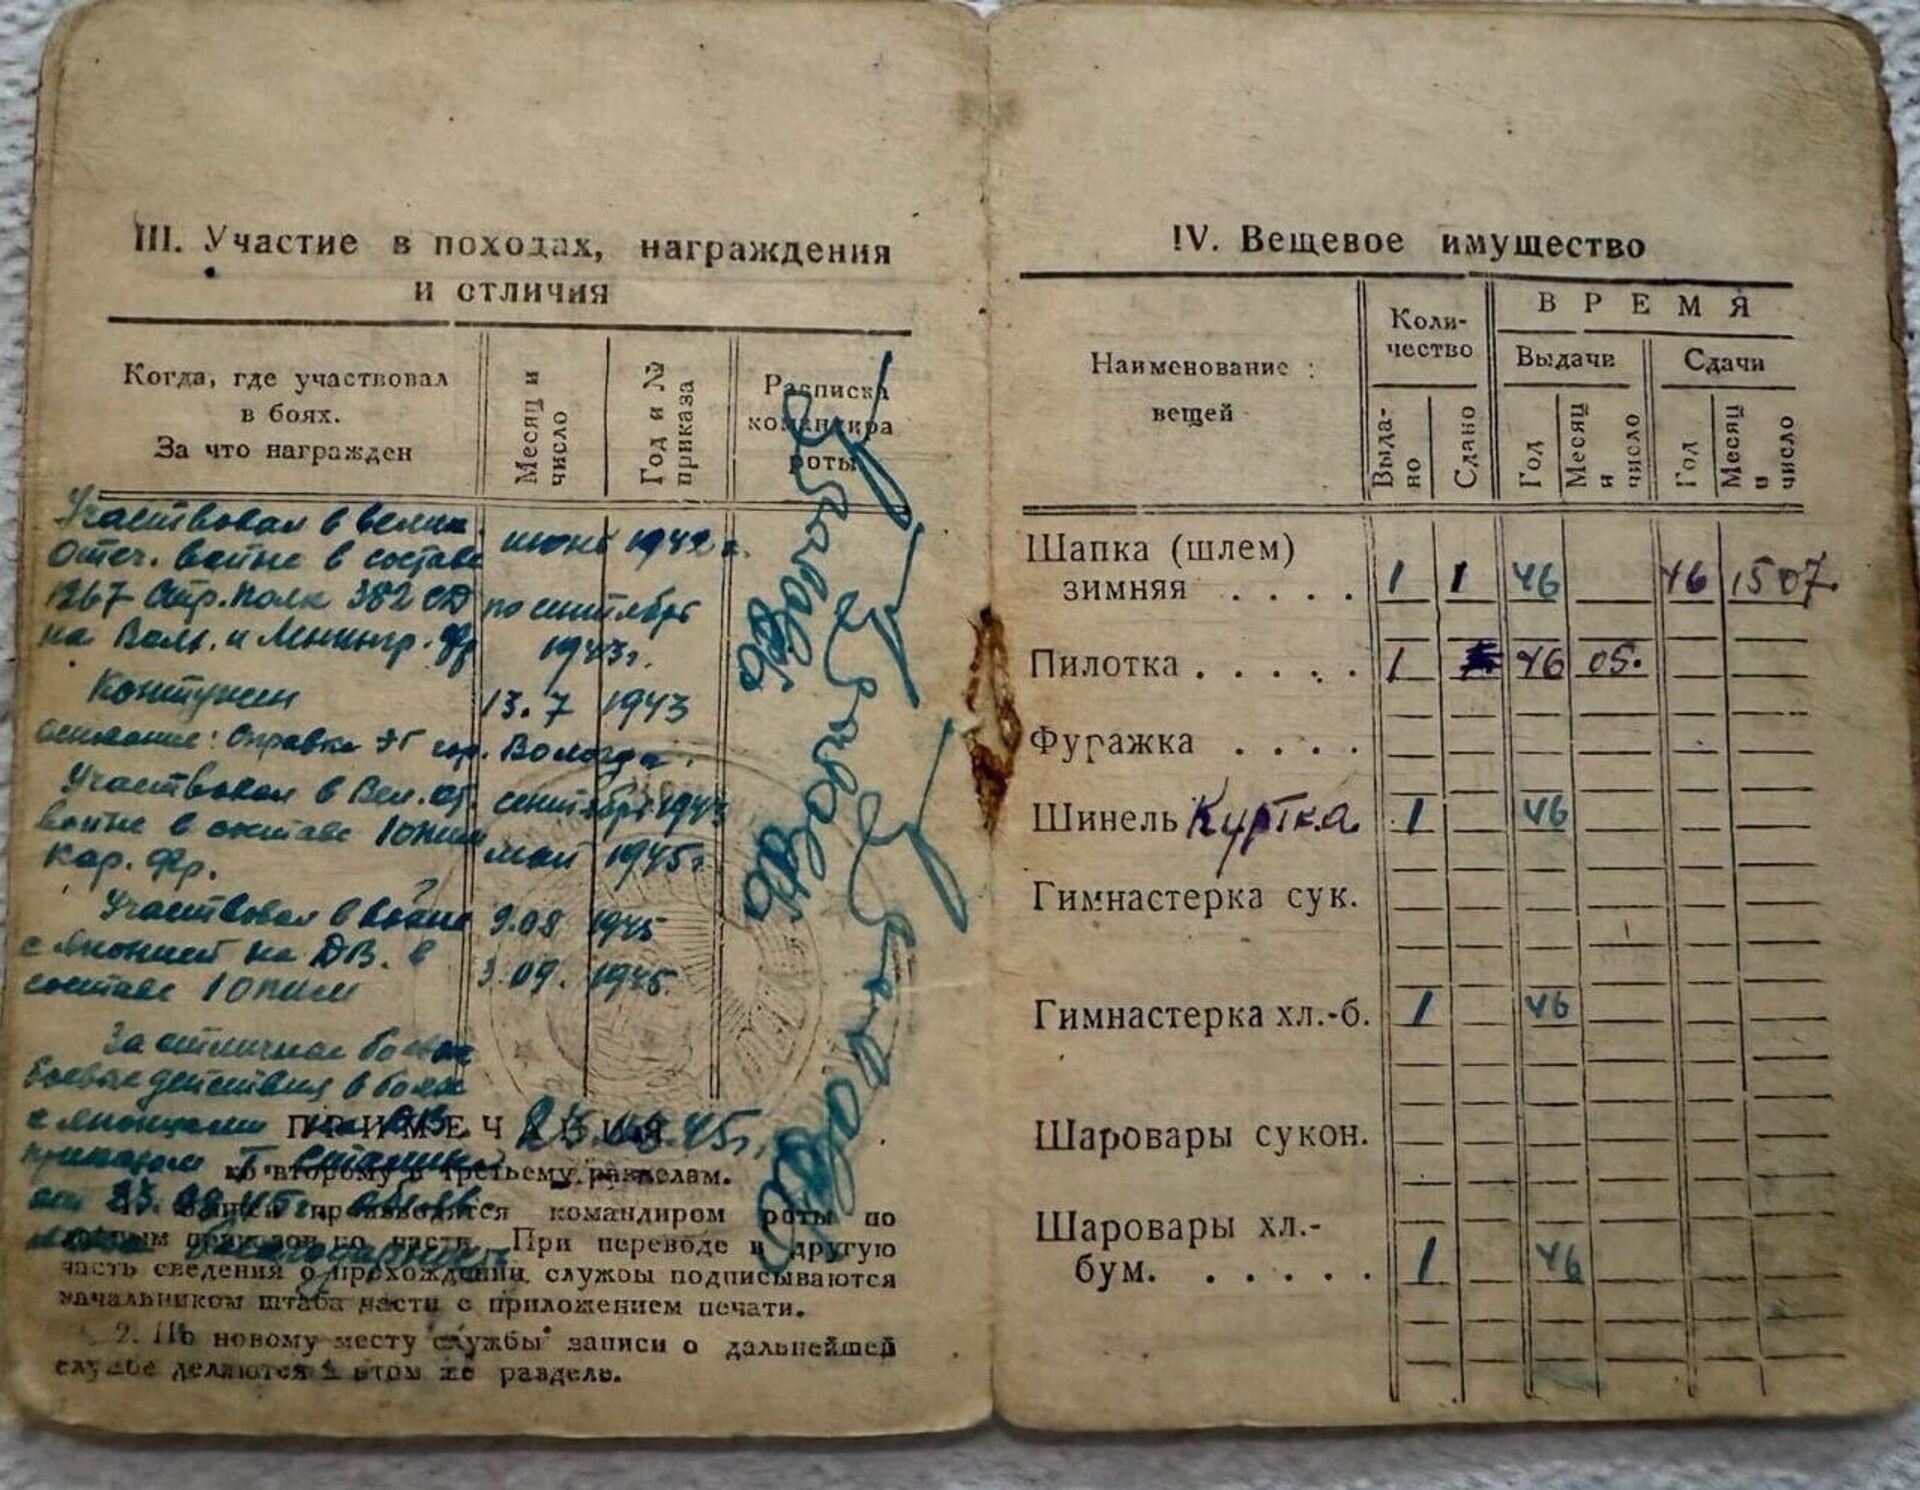 III. Участие в походах, награждения
и отличия
Когда, где участвовал
в боях.
За что награжден
Месяц и
число
Год и №
приказа
Расписка
командира
роты
Участвовал в велик.
Отеч. войне в составе
1267 Стр. полк 382 СД
на Волх. и Ленингр. фр
июнь 1942 г.
по сентябрь
1943 г.
Контужен 13.7 1943
основание: Справка ЭГ гор. Вологда.
Участвовал в Вел. от. сентябрь 1943
войне в составе
май 1945 г.
Кар. фр.
Участвовал в войне 9.08 1945
с Японией на ДВ. в
3.09. 1945
составе
За отличные
боевые действия в боях
с японцами
приказом Т. Сталина
от 23.08.45 г.
ПРИМЕЧАНИЯ
ко второму и третьему разделам.
1. Записи производятся командиром роты по
данным приказов по части. При переводе в другую
часть сведения о прохождении службы подписываются
начальником штаба части с приложением печати.
2. По новому месту службы записи о дальнейшей
службе делаются в этом же разделе.
IV. Вещевое имущество
Наименование
вещей
Коли-
чество
ВРЕМЯ
Выдачи
Сдачи
Выда-
но
Сдано
Год
Месяц
и
число
Год
Месяц
и
число
Шапка (шлем)
зимняя . . . . 1 1 46 46 15 07.
Пилотка . . . . . 1 46 05.
Фуражка . . . .
Шинель Куртка. 1 46
Гимнастерка сук.
Гимнастерка хл.-б. 1 46
Шаровары сукон.
Шаровары хл.-
бум. . . . . . . 1 46